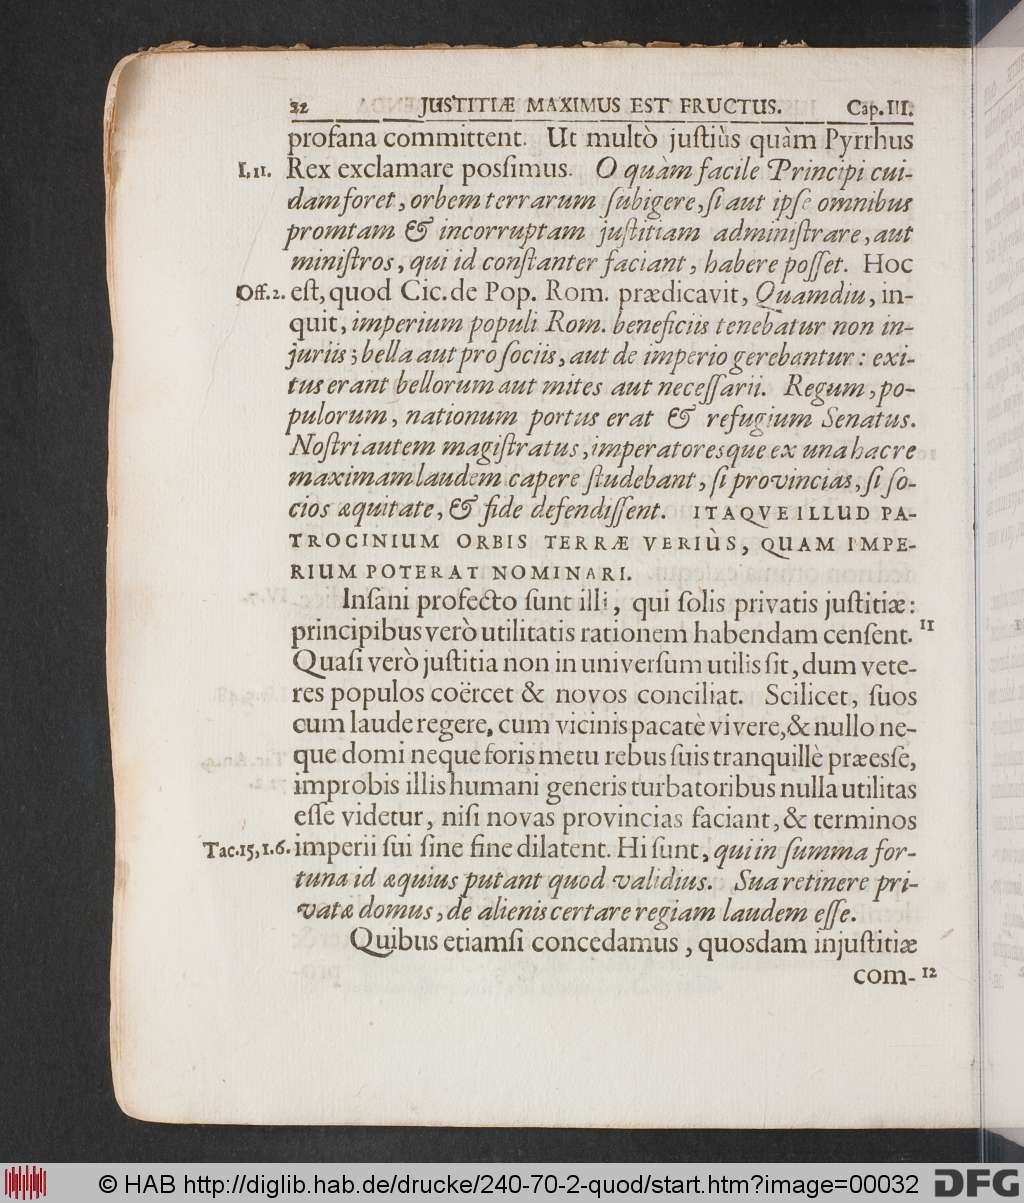 32 JUSTITIÆ MAXIMUS EST FRUCTUS. Cap. III.
profana committent. Ut multò juſtiùs quàm Pyrrhus
I, 11. Rex exclamare poſſimus. O quàm facile Principi cui-
dam foret, orbem terrarum ſubigere, ſi aut ipſe omnibus
promtam & incorruptam juſtitiam adminiſtrare, aut
miniſtros, qui id conſtanter faciant, habere poſſet. Hoc
Off. 2. eſt, quod Cic. de Pop. Rom. prædicavit, Quamdiu, in-
quit, imperium populi Rom. beneficiis tenebatur non in-
juriis; bella aut pro ſociis, aut de imperio gerebantur: exi-
tus erant bellorum aut mites aut neceſſarii. Regum, po-
pulorum, nationum portus erat & refugium Senatus.
Noſtri autem magiſtratus, imperatoresque ex una hac re
maximam laudem capere ſtudebant, ſi provincias, ſi ſo-
cios æquitate, & fide defendiſſent. ITAQVE ILLUD PA-
TROCINIUM ORBIS TERRÆ VERIÙS, QUAM IMPE-
RIUM POTERAT NOMINARI.
Inſani profecto ſunt illi, qui ſolis privatis juſtitiæ:
principibus verò utilitatis rationem habendam cenſent. 11
Quaſi verò juſtitia non in univerſum utilis ſit, dum vete-
res populos coërcet & novos conciliat. Scilicet, ſuos
cum laude regere, cum vicinis pacatè vivere, & nullo ne-
que domi neque foris metu rebus ſuis tranquillè præeſſe,
improbis illis humani generis turbatoribus nulla utilitas
eſſe videtur, niſi novas provincias faciant, & terminos
Tac. 15, 1. 6. imperii ſui ſine fine dilatent. Hi ſunt, qui in ſumma for-
tuna id æquius putant quod validius. Sua retinere pri-
vatæ domus, de alienis certare regiam laudem eſſe.
Quibus etiamſi concedamus, quosdam injuſtitiæ
com- 12
© HAB http://diglib.hab.de/drucke/240-70-2-quod/start.htm?image=00032
DFG